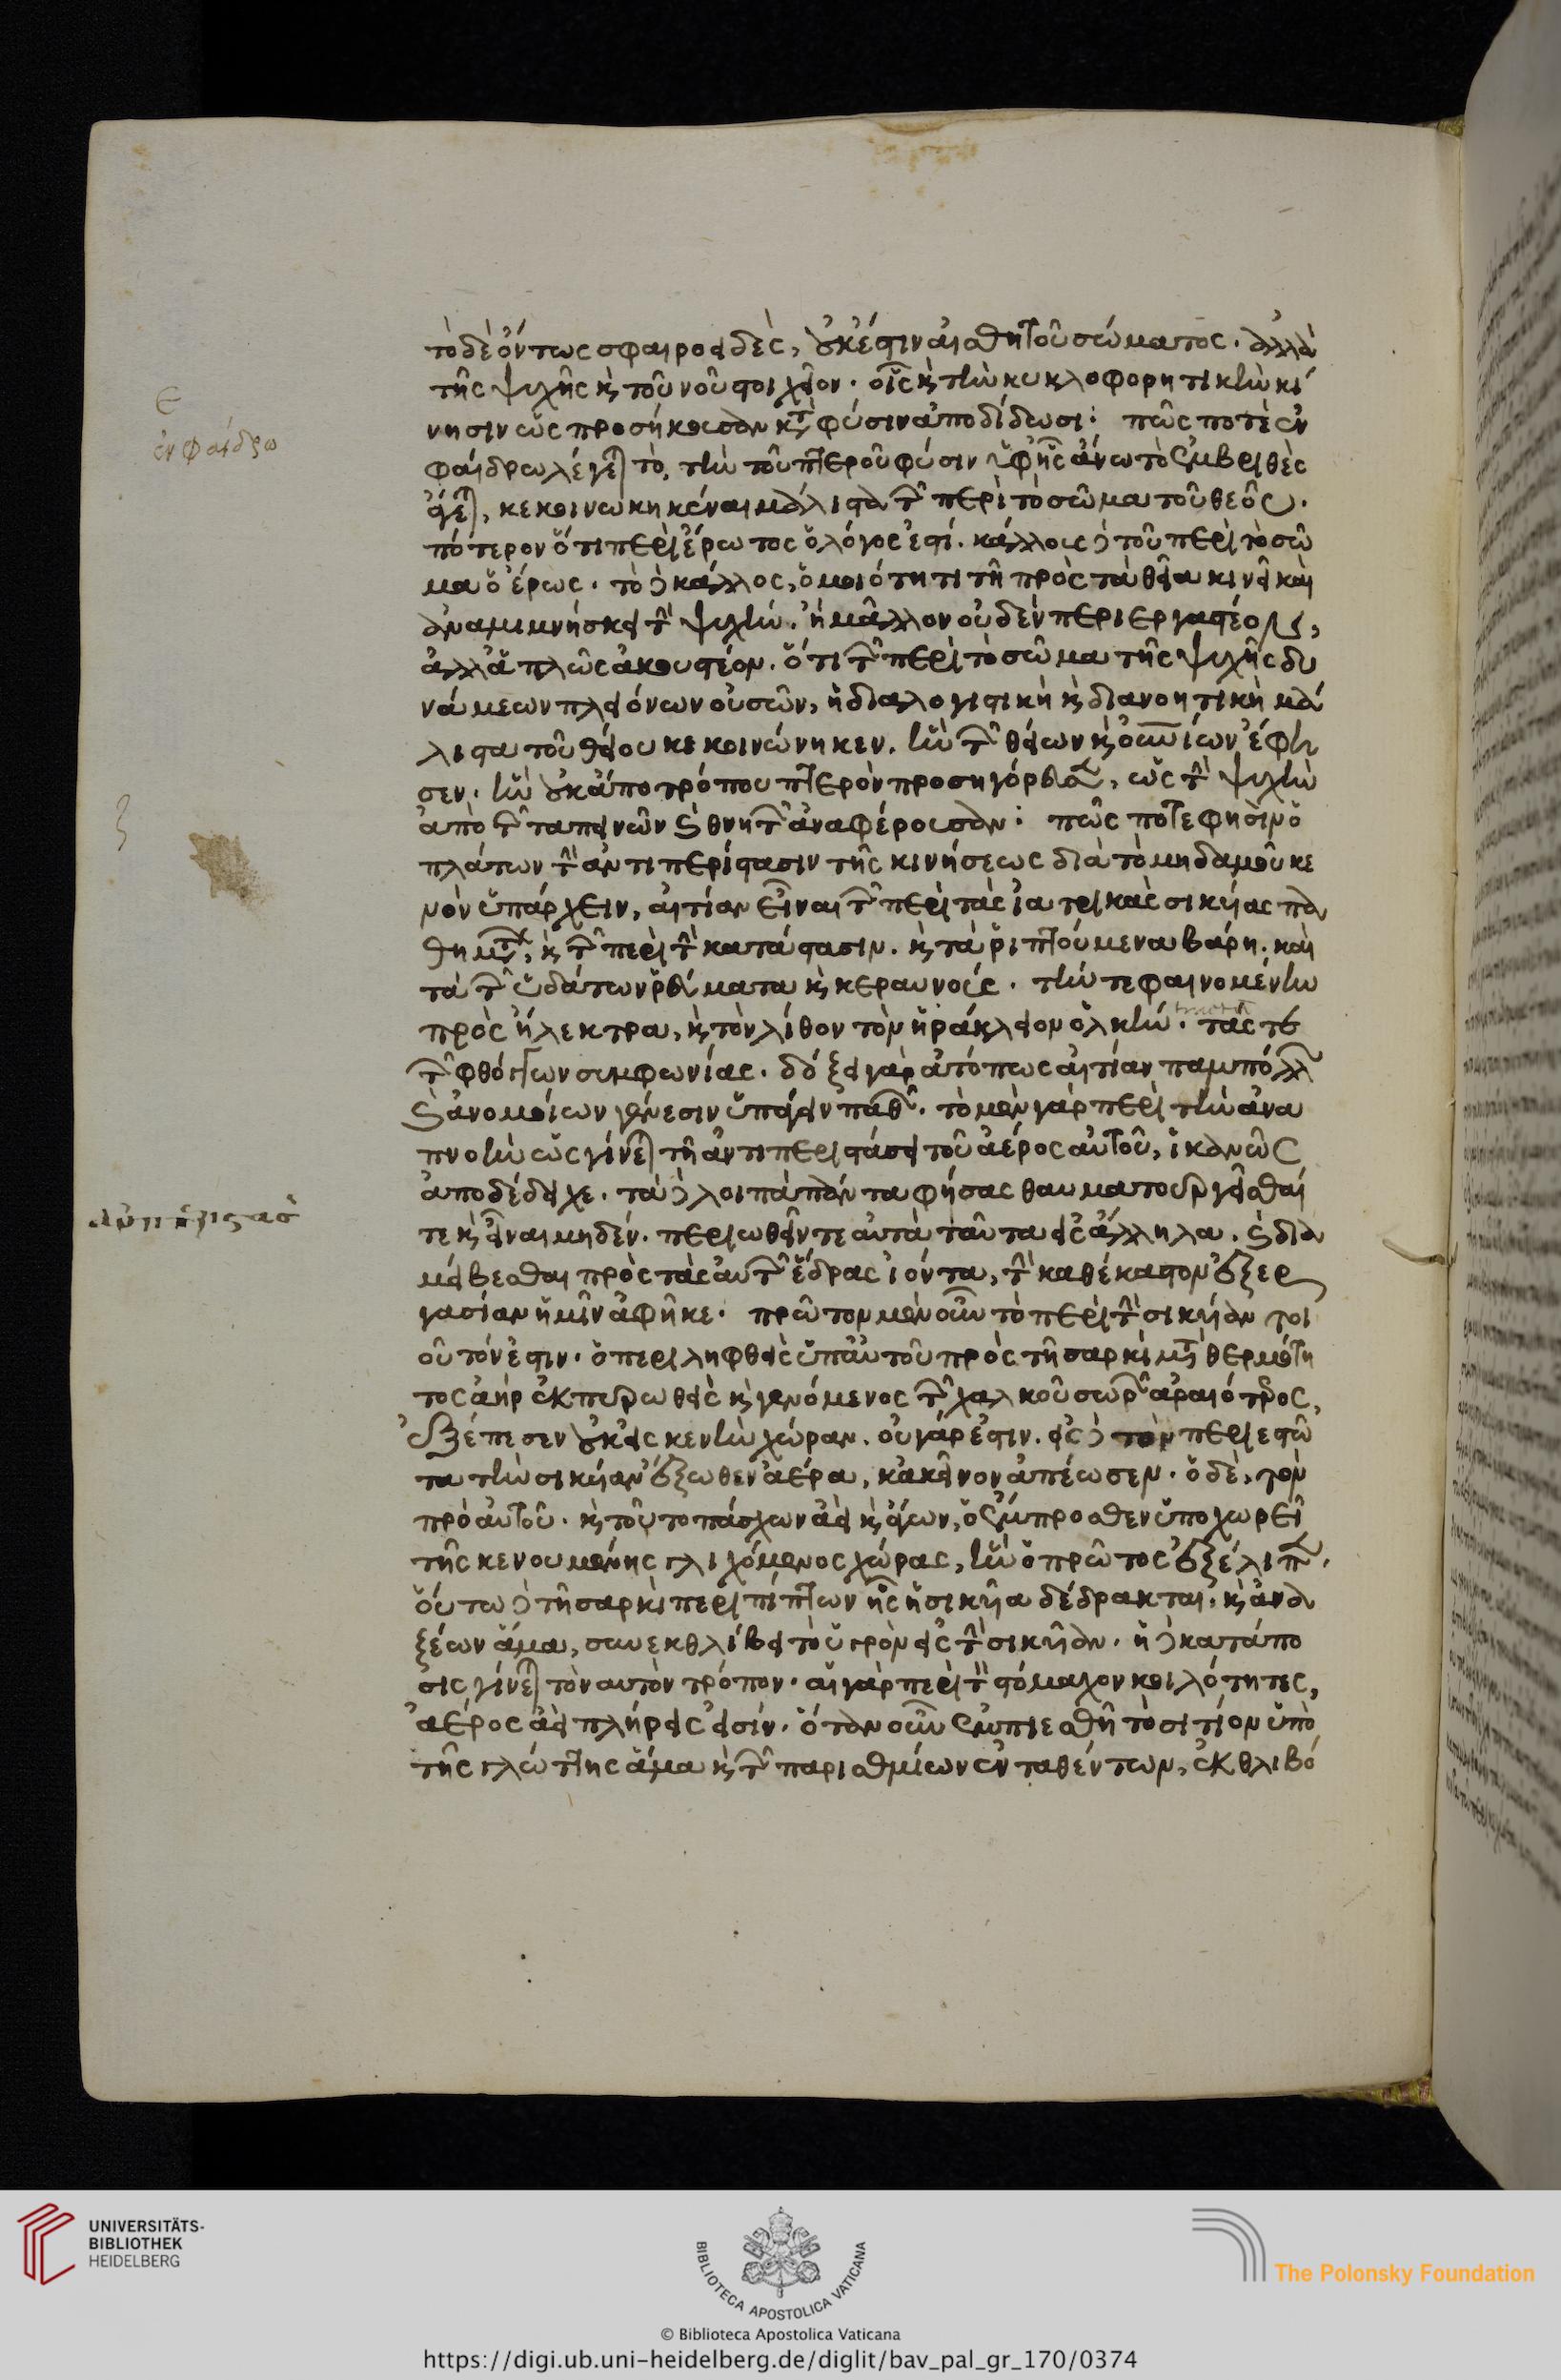 ε
ἐν φαίδρω
ζ
ἀντιπερίστασις
τὸ δὲ ὄντως σφαιροειδὲς, οὐκ ἔστιν αἰσθητοῦ σώματος. ἀλλὰ
τῆς ψυχῆς καὶ τοῦ νοῦ στοιχεῖον. οἷς καὶ τὴν κυκλοφορητικὴν κί
νησιν ὡς προσήκουσαν κατὰ φύσιν ἀποδίδωσι: πῶς ποτὲ ἐν
φαίδρω λέγεται τὸ, τὴν τοῦ πτεροῦ φύσιν ὑφ' ἧς ἄνω τὸ ἐμβριθὲς
ἄγεται, κεκοινωνηκέναι μάλιστα τῶν περὶ τὸ σῶμα τοῦ θεοῦ.
πότερον ὅτι περὶ ἔρωτος ὁ λόγος ἐστί. κάλλους δὲ τοῦ περὶ τὸ σῶ
μα ὁ ἔρως. τὸ δὲ κάλλος, ὁμοιότητι τῆ πρὸς τὰ θεῖα κινεῖ καὶ
ἀναμιμνήσκει τὴν ψυχήν. ἢ μᾶλλον οὐδὲν περιεργαστέον,
ἀλλὰ ἁπλῶς ἀκουστέον. ὅτι τῶν περὶ τὸ σῶμα τῆς ψυχῆς δυ
νάμεων πλειόνων οὐσῶν, ἡ διαλογιστικὴ καὶ διανοητικὴ μά
λιστα τοῦ θείου κεκοινώνηκεν. ἣν τῶν θείων καὶ οὐρανίων ἔφη
σεν. ἣν οὐκ ἄπο τρόπου πτερὸν προσηγόρευσεν, ὡς τὴν ψυχὴν
ἀπὸ τῶν ταπεινῶν καὶ θνητῶν ἀναφέρουσαν: πῶς ποτε φησὶν ὁ
πλάτων τὴν ἀντιπερίστασιν τῆς κινήσεως διὰ τὸ μηδαμοῦ κε
νὸν ὑπάρχειν, αἰτίαν εἶναι τῶν περὶ τὰς ἰατρικὰς σικύας πα
θημάτων, καὶ τῶν περὶ τὴν κατάστασιν. καὶ τὰ ῥιπτούμενα βάρη. καὶ
τὰ τῶν ὑδάτων ῥεύματα καὶ κεραυνούς. τήν τε φαινομένην
πρὸς ἤλεκτρα, καὶ τὸν λίθον τὸν ἡράκλειον ὁλκήν. τάς τε
τῶν φθόγγων συμφωνίας. δόξει γὰρ ἀτόπως αἰτίαν παμπόλλων
καὶ ἀνομοίων γένεσιν ὑπάγειν παθῶν. τὸ μὲν γὰρ περὶ τὴν ἀνα
πνοὴν ὡς γίνεται τῆ ἀντιπεριστάσει τοῦ ἀέρος αὐτοῦ, ἱκανῶς
ἀποδέδειχε. τὰ δὲ λοιπὰ πάντα φήσας θαυματουργεῖσθαί
τε καὶ εἶναι μηδέν. περιωθεῖν τε αὐτὰ ταῦτα εἰς ἄλληλα. καὶ δια
μείβεσθαι πρὸς τὰς αὑτῶν ἕδρας ἰόντα, τὴν καθέκαστον ἐξερ
γασίαν ἡμῖν ἀφῆκε. πρῶτον μὲν οὖν τὸ περὶ τὴν σικύαν τοι
οῦτόν ἐστιν. ὁ περιληφθεὶς ὑπ' αὐτοῦ πρὸς τῆ σαρκὶ μετὰ θερμότη
τος ἀὴρ ἐκπυρωθεὶς καὶ γενόμενος τῶν χαλκοῦ σωρῶν ἀραιότερος,
ἐξέπεσεν οὐκ εἰς κενὴν χώραν. οὐ γάρ ἐστιν. εἰς δὲ τὸν περιεστῶ
τα τὴν σικύαν ἔξωθεν ἀέρα, κἀκεῖνον ἀπέωσεν. ὁ δὲ, τὸν
πρὸ αὐτοῦ. καὶ τοῦτο πάσχων ἀεὶ καὶ ἄγων, ὁ ἔμπροσθεν ὑποχωρεῖ
τῆς κενουμένης γλιχόμενος χώρας, ἣν ὁ πρῶτος ἐξέλιπεν.
οὕτω δὲ τῆ σαρκὶ περιπίπτων ἧς ἡ σικύα δέδρακται. καὶ ἀνα
ξέων ἅμα, συνεκθλίβει τὸ ὑγρὸν εἰς τὴν σικύαν. ἡ δὲ κατάπο
σις γίνεται τὸν αὐτὸν τρόπον. αἱ γὰρ περὶ τὸν στόμαχον κοιλότητες,
ἀέρος ἀεὶ πλήρεις εἰσίν. ὅταν οὖν ἐμπιεσθῆ τὸ σιτίον ὑπὸ
τῆς γλώττης ἅμα καὶ τῶν παρισθμίων ἐνταθέντων, ἐκθλιβό
UNIVERSITÄTS-
BIBLIOTHEK
HEIDELBERG
BIBLIOTECA APOSTOLICA VATICANA
The Polonsky Foundation
© Biblioteca Apostolica Vaticana
https://digi.ub.uni-heidelberg.de/diglit/bav_pal_gr_170/0374